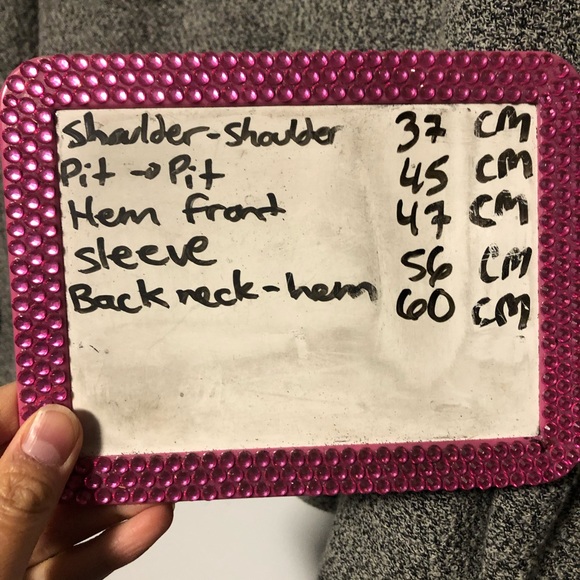 Shoulder-Shoulder 37 CM
Pit → Pit 45 CM
Hem front 47 CM
sleeve 56 CM
Back neck-hem 60 CM